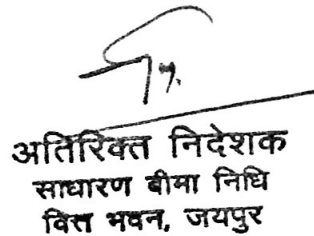 अतिरिक्त निदेशक
साधारण बीमा निधि
वित्त भवन, जयपुर